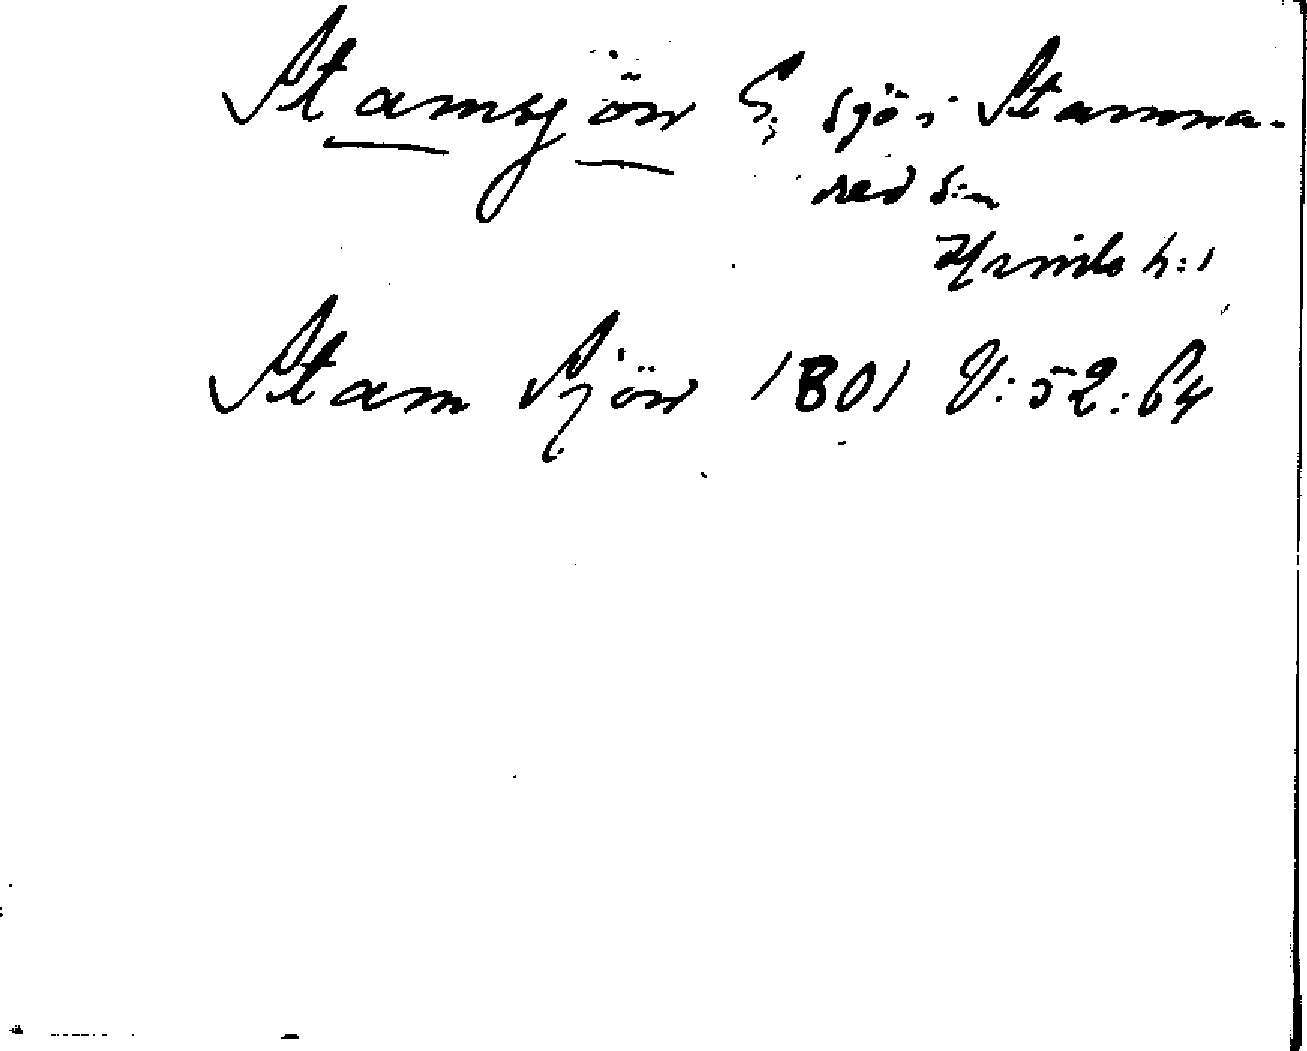 Stamsjön S; sjö i Stamna-
red s:n
h:d
Stam Sjön 1801 V:52:64